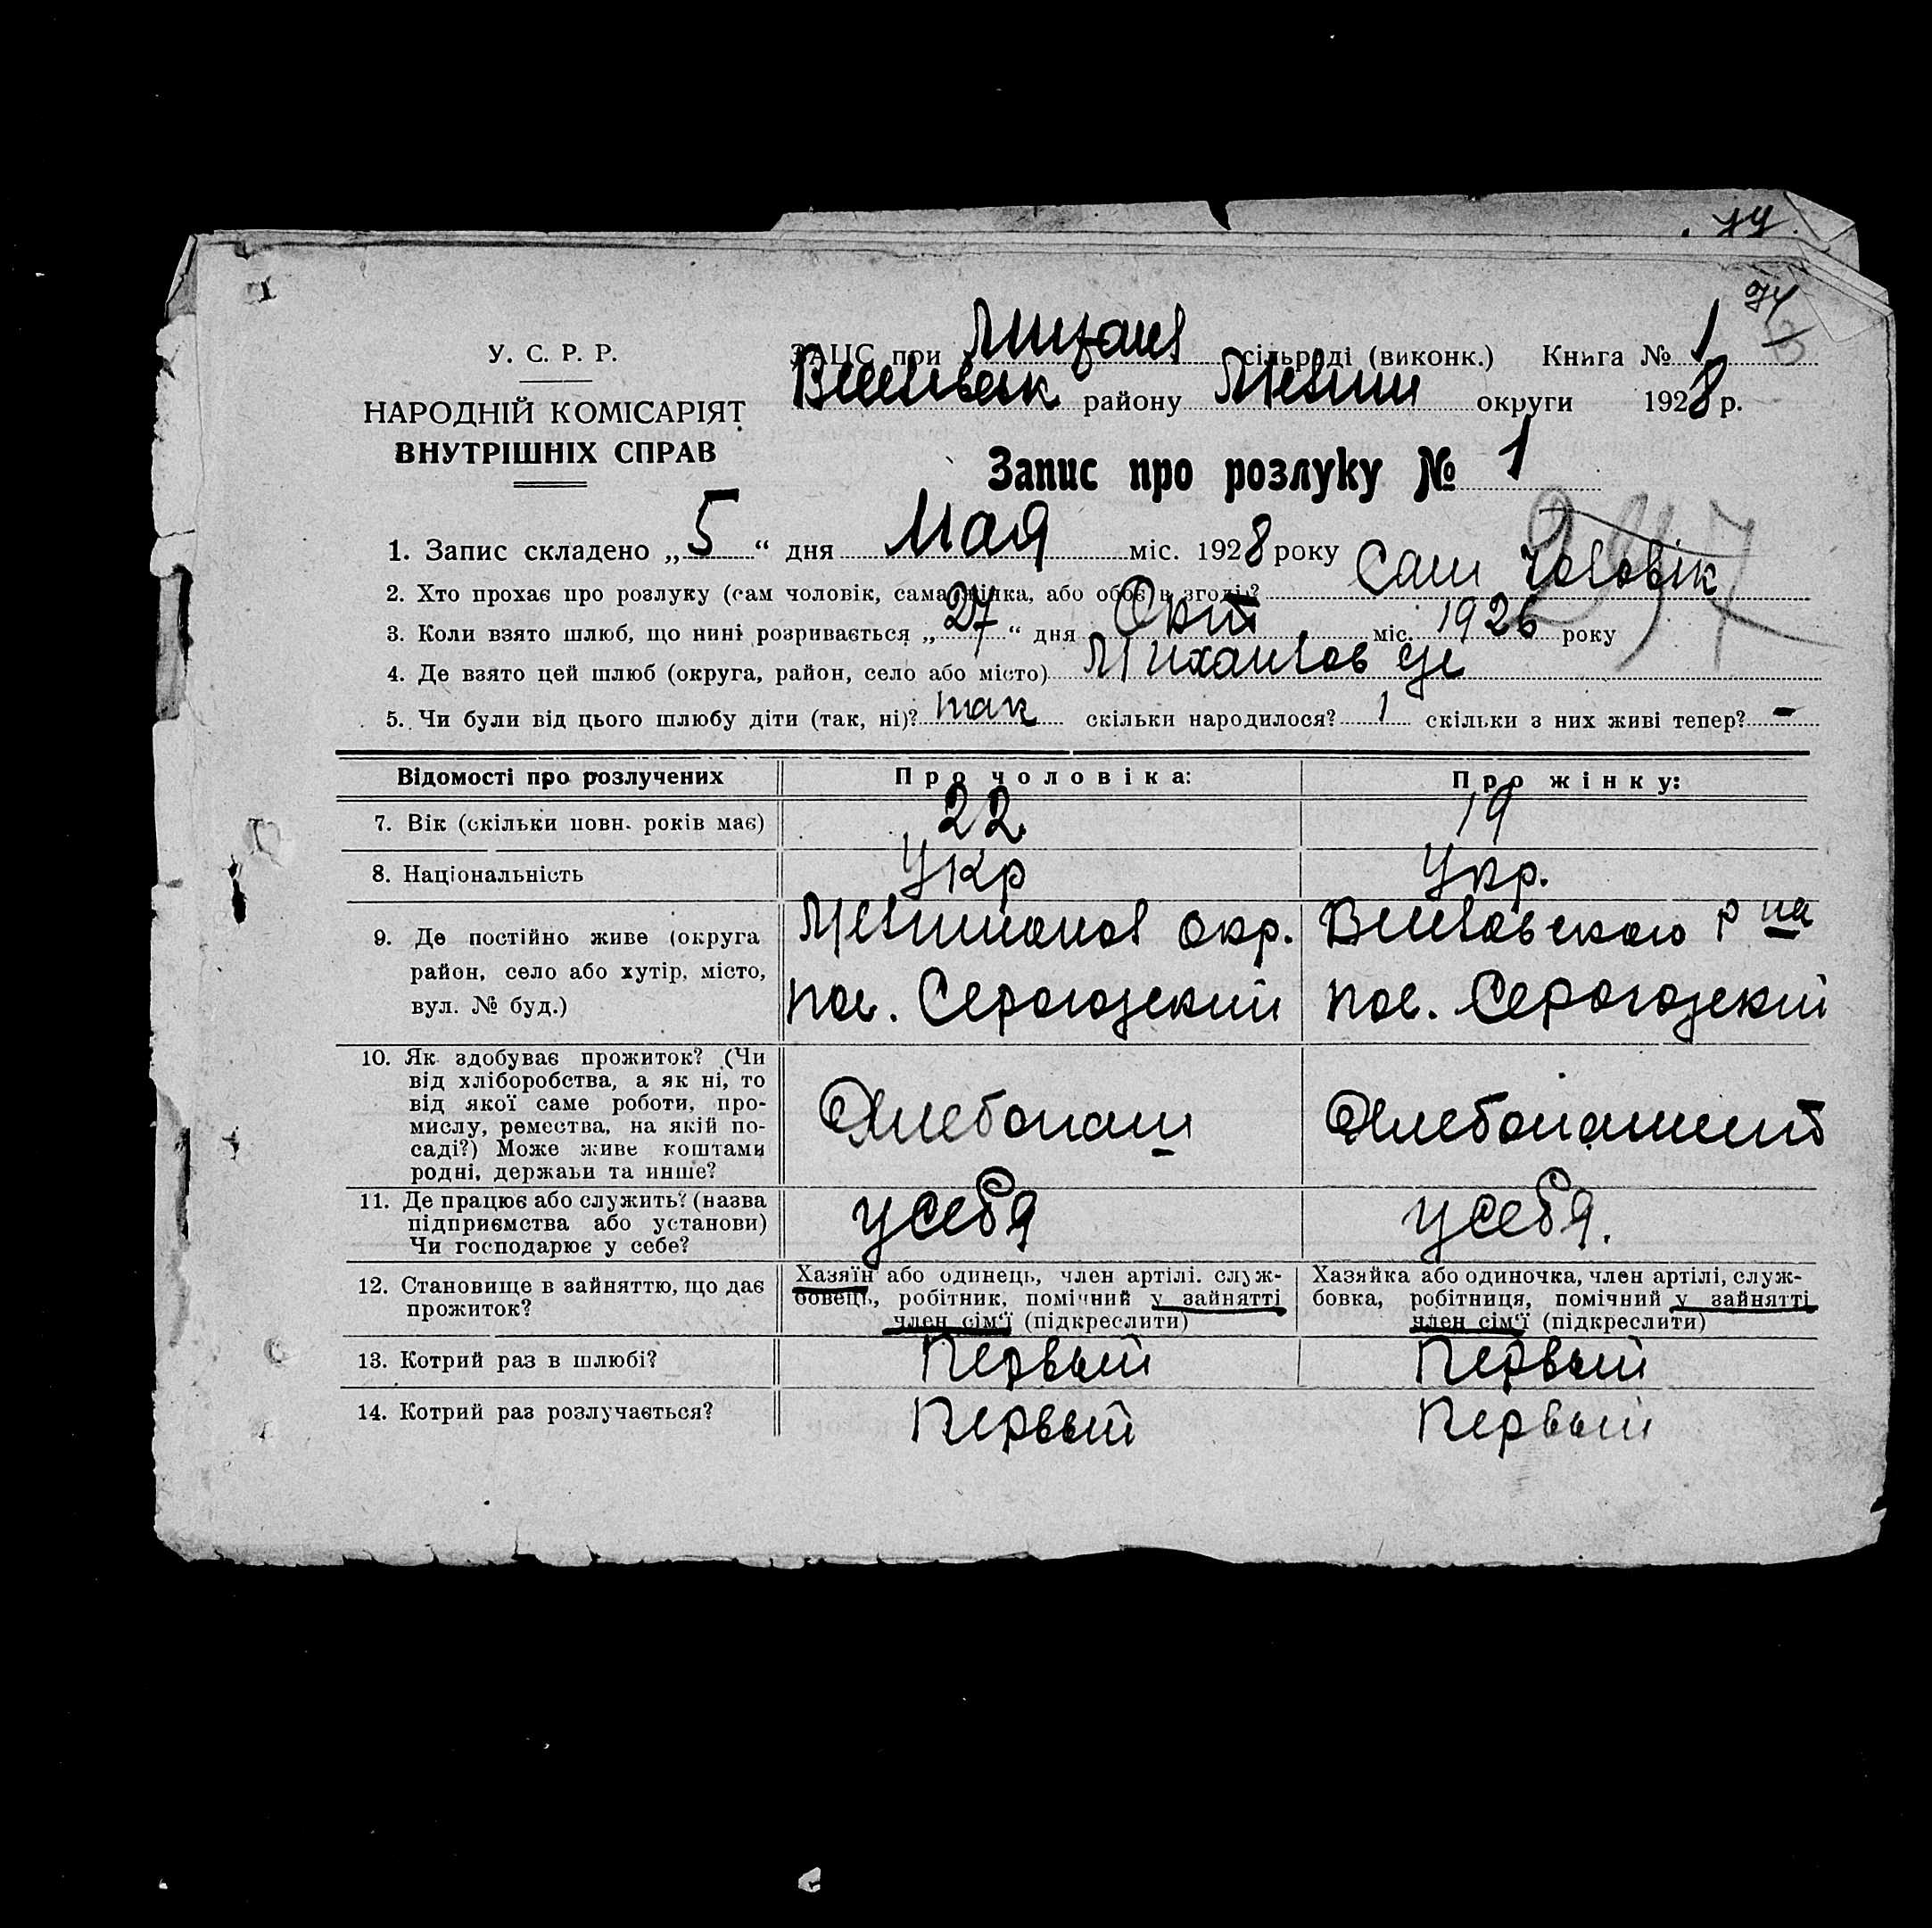 У. С. Р. Р.
НАРОДНІЙ КОМІСАРІЯТ
ВНУТРІШНІХ СПРАВ
ЗАЦС при сільраді (виконк.) Книга № 1
району округи 1928 р.
Запис про розлуку № 1
1. Запис складено „5“ дня Мая міс. 1928 року
2. Хто прохає про розлуку (сам чоловік, сама жінка, або обоє в згоді)? Сам чоловік
3. Коли взято шлюб, що нині розривається „27“ дня Окт міс. 1926 року
4. Де взято цей шлюб (округа, район, село або місто)
5. Чи були від цього шлюбу діти (так, ні)? так скільки народилося? 1 скільки з них живі тепер? -
Відомості про розлучених Про чоловіка: Про жінку:
7. Вік (скільки повн. років має) 22 19
8. Національність Укр Укр.
9. Де постійно живе (округа
район, село або хутір, місто,
вул. № буд.)
окр.
пос. Серогозский
р на
пос. Серогозский
10. Як здобуває прожиток? (Чи
від хліборобства, а як ні, то
від якої саме роботи, про-
мислу, ремества, на якій по-
саді?) Може живе коштами
родні, держави та инше?
Хлебопаш
11. Де працює або служить? (назва
підприємства або установи)
Чи господарює у себе?
у себя у себя.
12. Становище в зайняттю, що дає
прожиток?
Хазяїн або одинець, член артілі, служ-
бовець, робітник, помічний у зайнятті
член сім'ї (підкреслити)
Хазяйка або одиночка, член артілі, служ-
бовка, робітниця, помічний у зайнятті
член сім'ї (підкреслити)
13. Котрий раз в шлюбі? Первый Первый
14. Котрий раз розлучається? Первый Первый